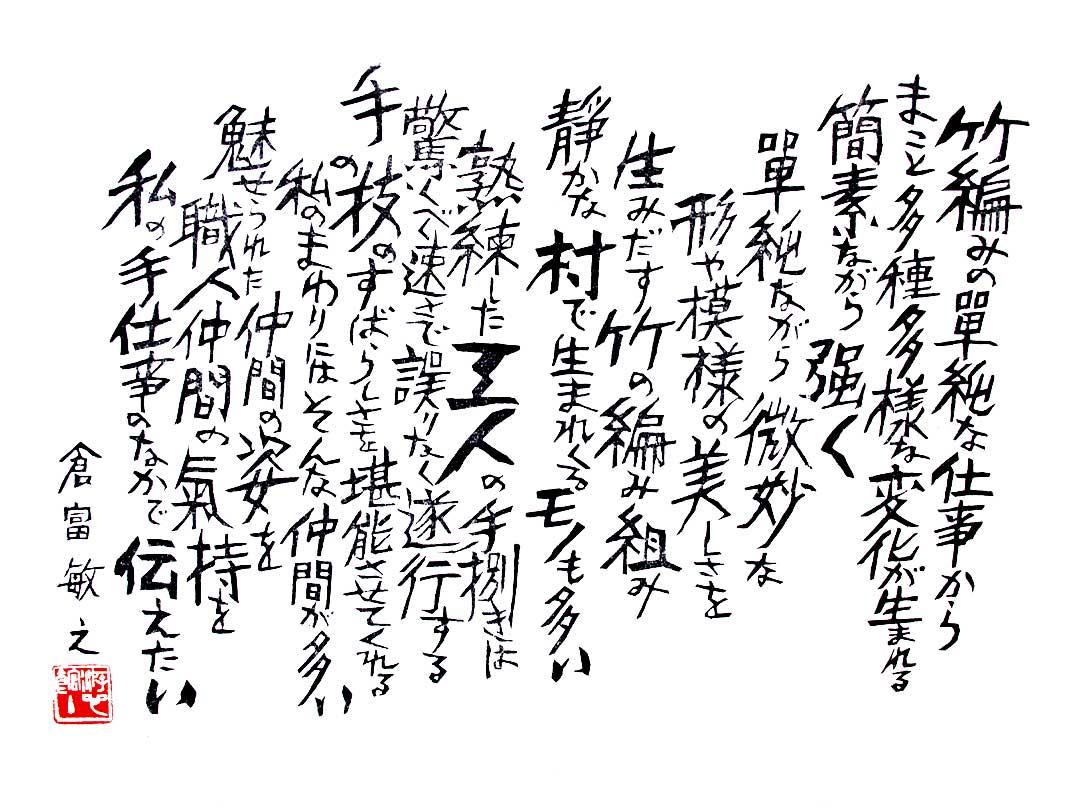 竹編みの單純な仕事から
まこと多種多様な変化が生まれる
簡素ながら强く
單純ながら微妙な
形や模様の美しさを
生みだす竹の編み組み
靜かな村で生まれくるモノも多い
熟練した工人の手捌きは
驚くべ速さで誤りなく遂行する
手の技のすばらしさを堪能させてくれる
私のまわりはそんな仲間が多い
魅せられた仲間の姿を
職人仲間の氣持を
私の手仕事のなかで伝えたい
倉富敏之